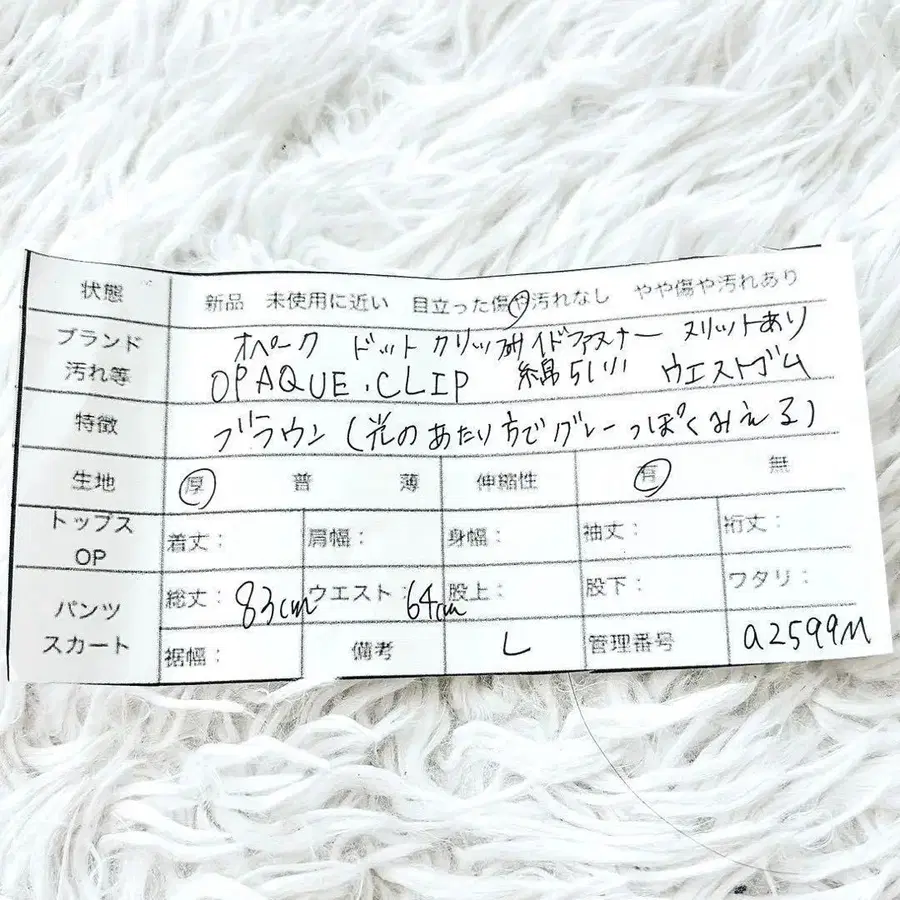 状態 新品 未使用に近い 目立った傷や汚れなし やや傷や汚れあり
ブランド オペーク ドット クリップ サイドファスナー スリットあり
汚れ等 OPAQUE.CLIP 綿らしい ウエストゴム
特徴 ブラウン(光のあたり方でグレーっぽくみえる)
生地 厚 普 薄 伸縮性 有 無
トップス
OP 着丈: 肩幅: 身幅: 袖丈: 裄丈:
パンツ 総丈: 83cm ウエスト: 64cm 股上: 股下: ワタリ:
スカート 裾幅: 備考 L 管理番号 a2599M